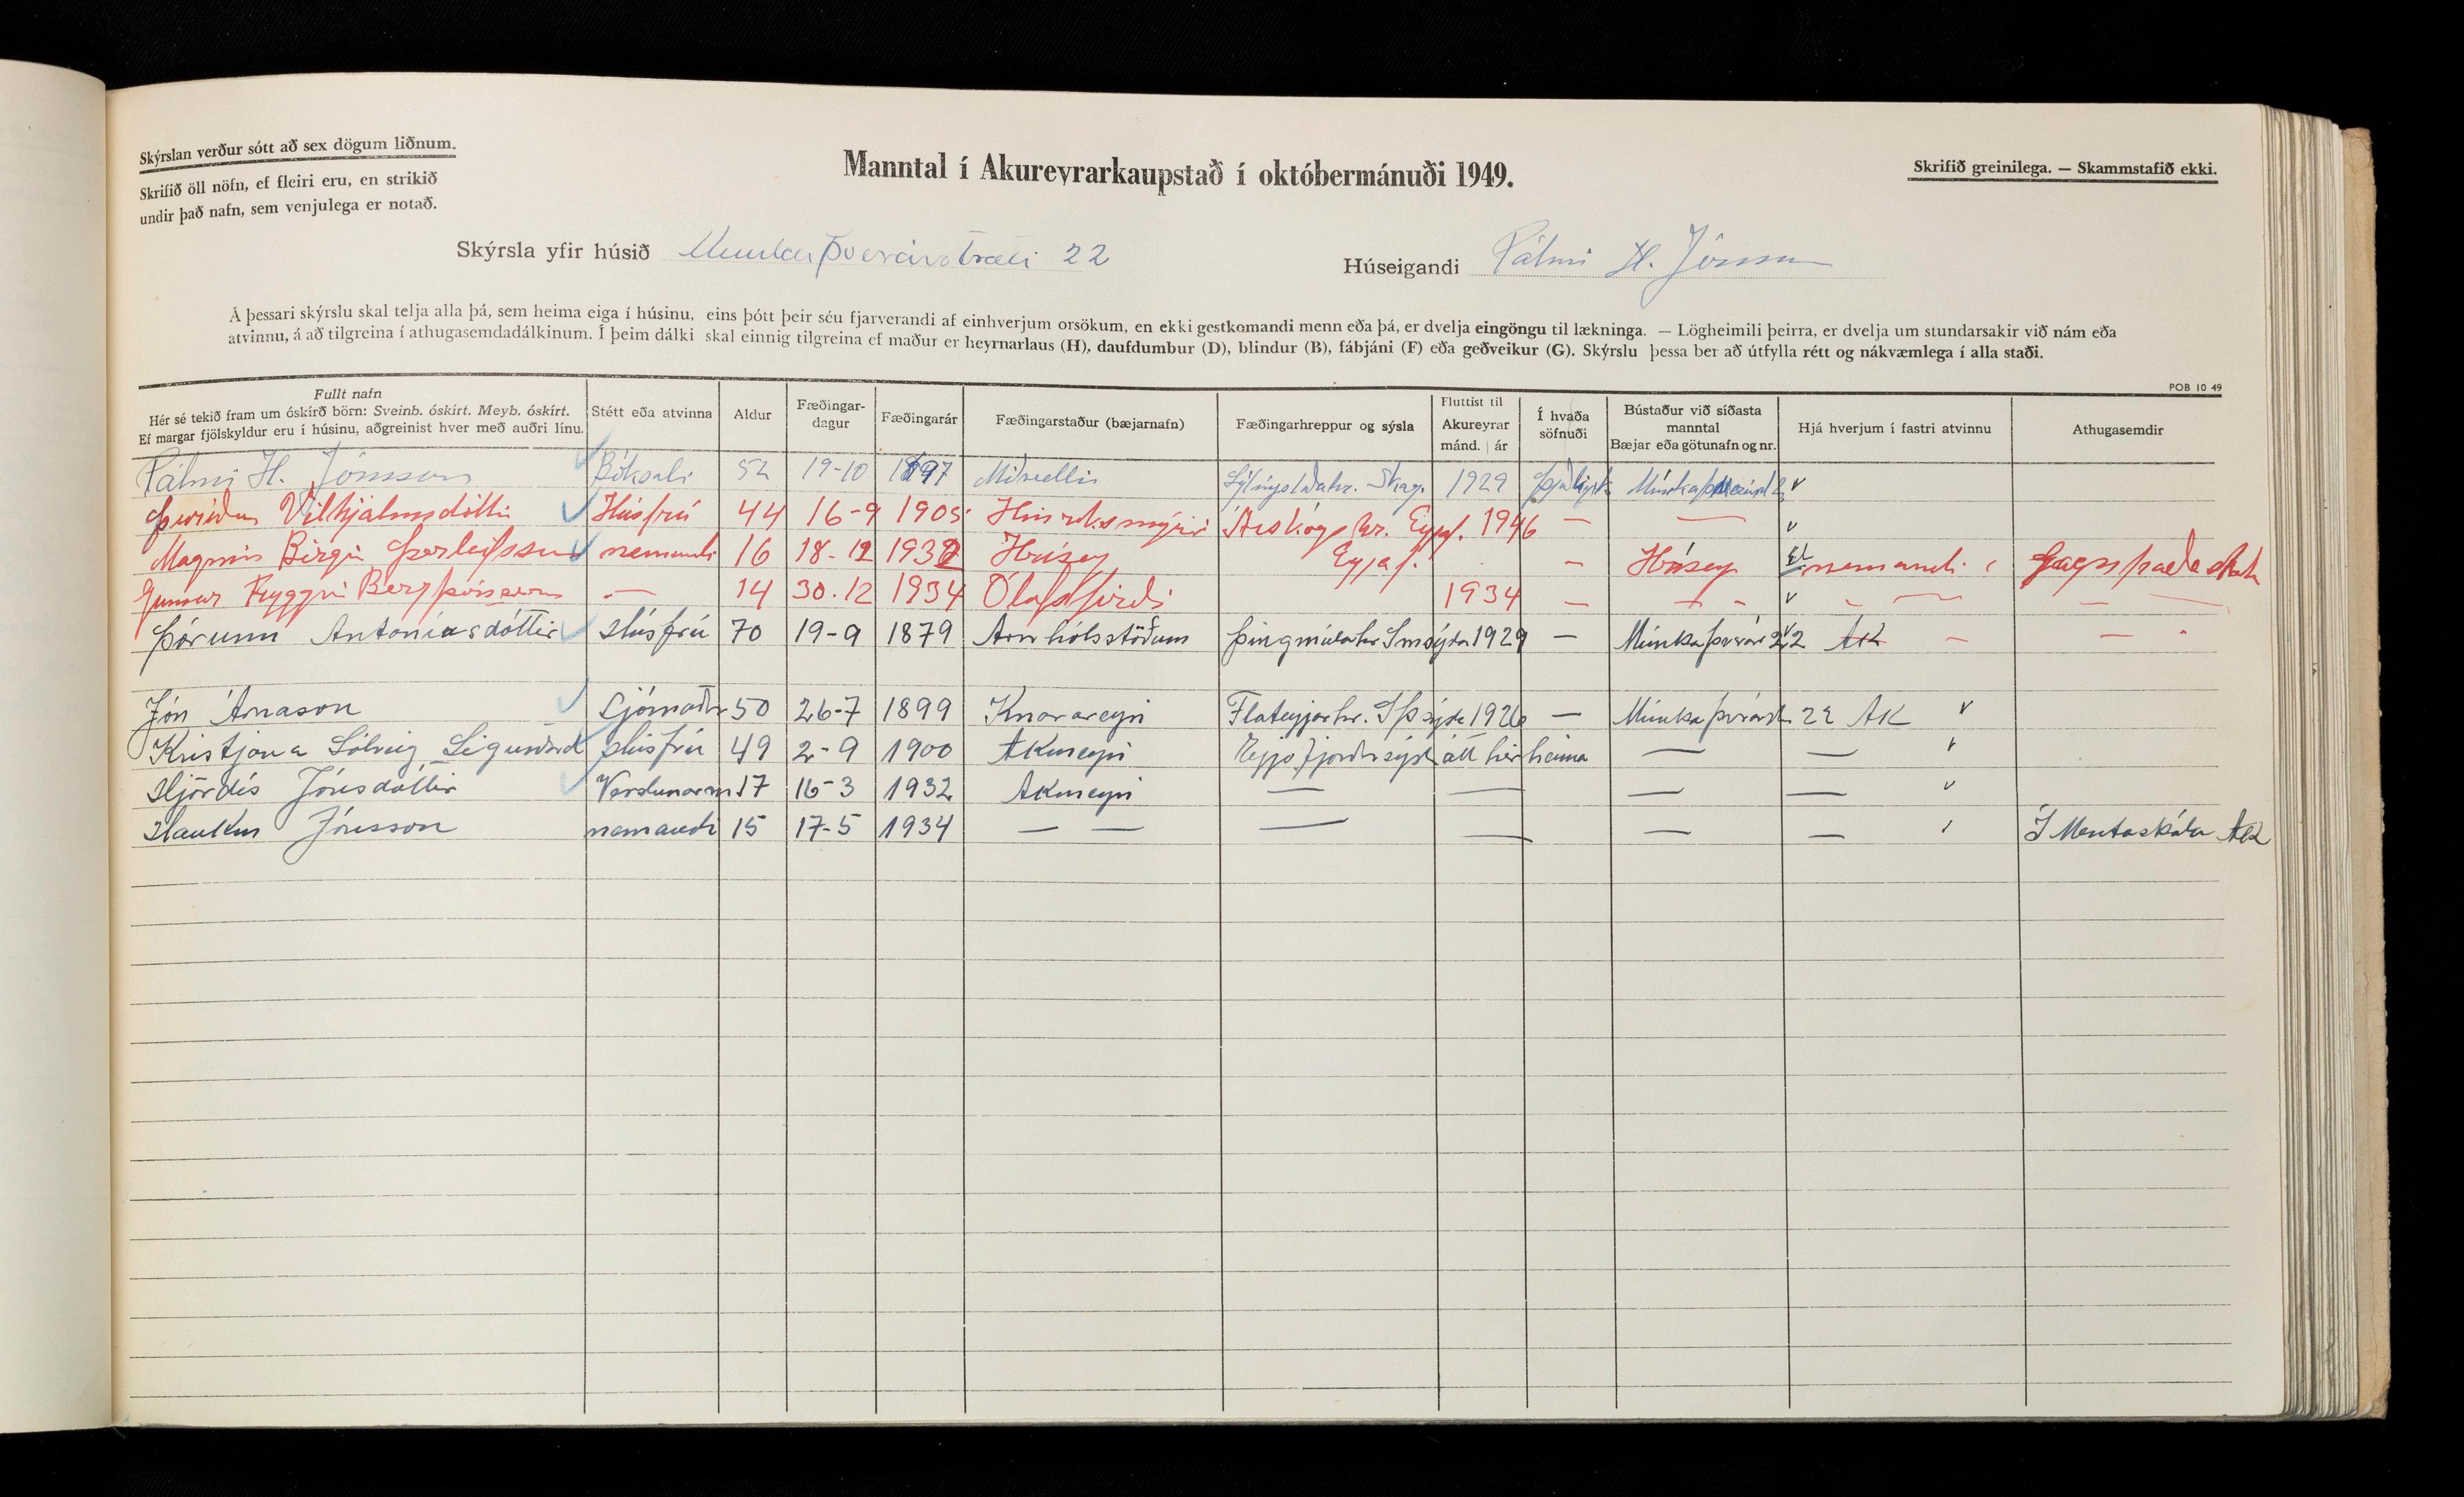 Skýrslan verður sótt að sex dögum liðnum.
Skrifið öll nöfn, ef fleiri eru, en strikið
undir það nafn, sem venjulega er notað.
Manntal í Akureyrarkaupstað í októbermánuði 1949.
Skrifið greinilega. — Skammstafið ekki.
Skýrsla yfir húsið Munkaþverárstræti 22
Húseigandi Pálmi H. Jónsson
Á þessari skýrslu skal telja alla þá, sem heima eiga í húsinu, eins þótt þeir séu fjarverandi af einhverjum orsökum, en ekki gestkomandi menn eða þá, er dvelja eingöngu til lækninga. — Lögheimili þeirra, er dvelja um stundarsakir við nám eða
atvinnu, á að tilgreina í athugasemdadálkinum. Í þeim dálki skal einnig tilgreina ef maður er heyrnarlaus (H), daufdumbur (D), blindur (B), fábjáni (F) eða geðveikur (G). Skýrslu þessa ber að útfylla rétt og nákvæmlega í alla staði.
POB 10 49
Fullt nafn
Hér sé tekið fram um óskírð börn: Sveinb. óskírt. Meyb. óskírt.
Ef margar fjölskyldur eru í húsinu, aðgreinist hver með auðri línu.
Stétt eða atvinna
Aldur
Fæðingar-
dagur
Fæðingarár
Fæðingarstaður (bæjarnafn)
Fæðingarhreppur og sýsla
Fluttist til
Akureyrar
mánd. ár
Í hvaða
söfnuði
Bústaður við síðasta
manntal
Bæjar eða götunafn og nr.
Hjá hverjum í fastri atvinnu
Athugasemdir
Pálmi H. Jónsson Bóksali 52 19-10 1897 Skag. 1929
Þuríður Vilhjálmsdóttir Húsfrú 44 16-9 1905 Hinriksmýri Árskógshr. Eyjaf. 1946 — —
Magnús Birgir Þorleifsson nemandi 16 18-12 1932 Hrísey Eyjaf. — Hrísey nemandi Gagnfræðaskól
Gunnar Tryggvi Bergþórsson — 14 30.12 1934 Ólafsfirði 1934 — — — — —
Þórunn Antoníasdóttir Húsfrú 70 19-9 1879 Arnhólsstöðum Þingmúlahr. Smsýsla 1929 — Múnkaþverár 22 AK — — "
Jón Árnason Sjómaður 50 26-7 1899 Knarareyri Flateyjarhr. SÞsýsla 1926 — Múnkaþverárst 22 AK
Kristjana Sólveig Sigurðard Húsfrú 49 2-9 1900 Akureyri Eyjafjarðarsýsla átt hér heima — —
Hjördís Jónsdóttir Verslunarm. 17 16-3 1932 Akureyri — — — —
Haukur Jónsson nemandi 15 17-5 1934 — — — — — — Í Mentaskóla Ak